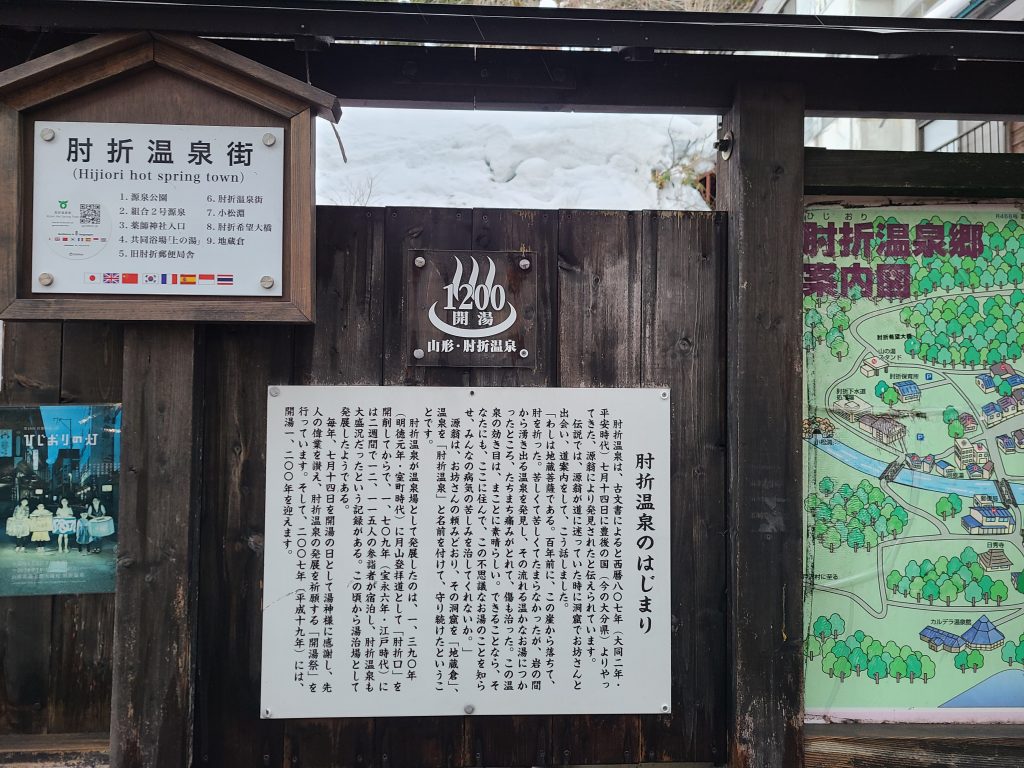 肘折温泉街
(Hijiori hot spring town)
1. 源泉公園
2. 組合２号源泉
3. 薬師神社入口
4. 共同浴場「上の湯」
5. 旧肘折郵便局舎
6. 肘折温泉街
7. 小松淵
8. 肘折希望大橋
9. 地蔵倉
1200
開湯
山形・肘折温泉
肘折温泉のはじまり
肘折温泉は、古文書によると西暦八〇七年（大同二年・
平安時代）七月十四日に豊後の国（今の大分県）よりやっ
てきた、源翁により発見されたと伝えられています。
伝説では、源翁が道に迷っていた時に洞窟でお坊さんと
出会い、道案内をして、こう話しました。
「わしは地蔵菩薩である。百年前に、この崖から落ちて、
肘を折った。苦しくて苦しくてたまらなかったが、岩の間
から湧き出る温泉を発見し、その流れる温かなお湯につか
ったところ、たちまち痛みがとれて、傷も治った。この温
泉の効き目は、まことに素晴らしい。できることなら、そ
なたにも、ここに住んで、この不思議なお湯のことを知ら
せ、みんなの病気の苦しみを治してくれないか。」
源翁は、お坊さんの頼みどおり、その洞窟を「地蔵倉」、
温泉を「肘折温泉」と名前を付けて、守り続けたというこ
とです。
肘折温泉が温泉場として発展したのは、一、三九〇年
（明徳元年・室町時代）に月山登拝道として「肘折口」を
開削してからで、一、七〇九年（宝永六年・江戸時代）に
は二週間で一二、一一五人の参詣者が宿泊し、肘折温泉も
大盛況だったという記録がある。この頃から湯治場として
発展したようである。
毎年、七月十四日を開湯の日として湯神様に感謝し、先
人の偉業を讃え、肘折温泉の発展を祈願する「開湯祭」を
行っています。そして、二〇〇七年（平成十九年）には、
開湯一、二〇〇年を迎えます。
ひじおりの灯
ひじおり
肘折温泉郷
案内図
肘折希望大橋
肘折保育所
肘折下水道
カルデラ温泉館